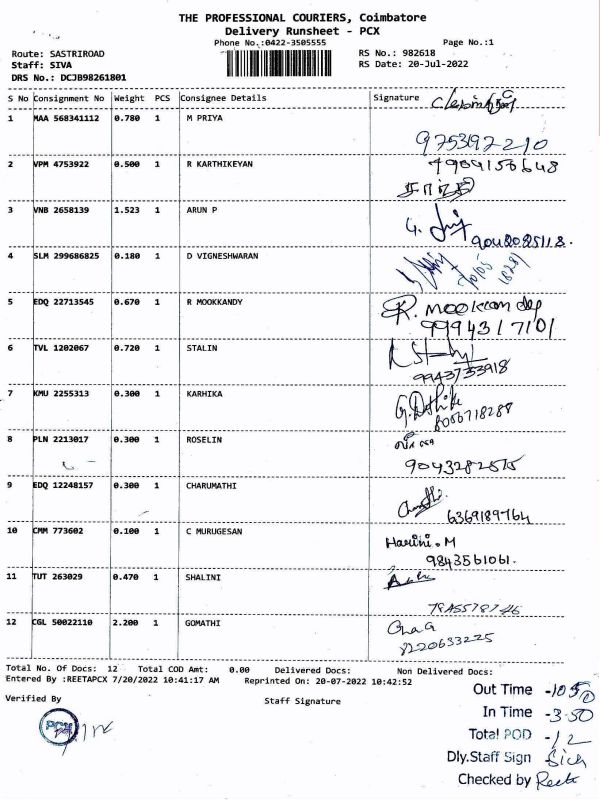 THE PROFESSIONAL COURIERS, Coimbatore
Delivery Runsheet - PCX
Phone No.:0422-3505555 Page No.:1
Route: SASTRIROAD RS No.: 982618
Staff: SIVA RS Date: 20-Jul-2022
DRS No.: DCJB98261801
S No Consignment No Weight PCS Consignee Details Signature
1 MAA 568341112 0.780 1 M PRIYA
975397210
2 VPM 4753922 0.500 1 R KARTHIKEYAN 7904156648
3 VNB 2658139 1.523 1 ARUN P
9042025112.
4 SLM 299686825 0.180 1 D VIGNESHWARAN
5 EDQ 22713545 0.670 1 R MOOKKANDY R.
9994317101
6 TVL 1202067 0.720 1 STALIN
9943733918
7 KMU 2255313 0.300 1 KARHIKA
8056718288
8 PLN 2213017 0.300 1 ROSELIN
9043282575
9 EDQ 12248157 0.300 1 CHARUMATHI
6369189764
10 CMM 773602 0.100 1 C MURUGESAN Harini. M
9843561061.
11 TUT 263029 0.470 1 SHALINI
12 CGL 50022110 2.200 1 GOMATHI
8220633225
Total No. Of Docs: 12 Total COD Amt: 0.00 Delivered Docs: Non Delivered Docs:
Entered By :REETAPCX 7/20/2022 10:41:17 AM Reprinted On: 20-07-2022 10:42:52
Verified By Staff Signature
PCX
Out Time -1050
In Time -3-50
Total POD -12
Dly.Staff Sign
Checked by Reeta